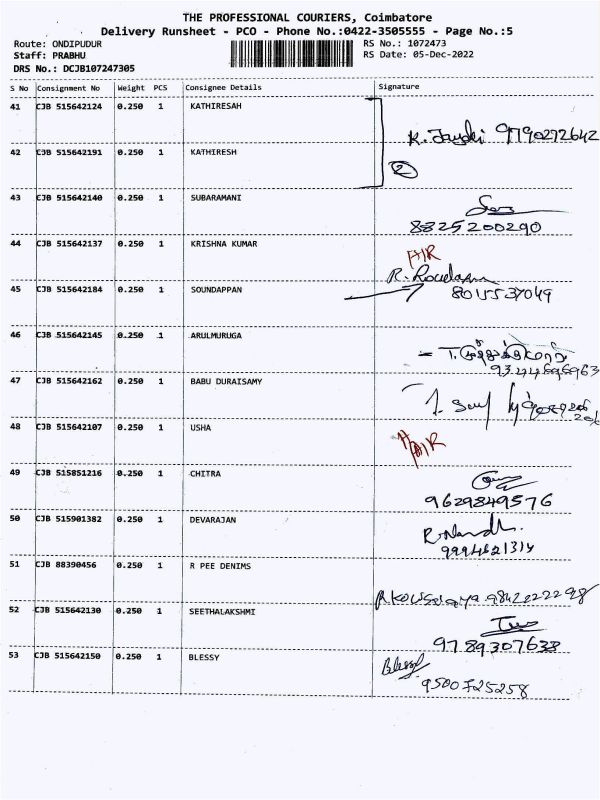 THE PROFESSIONAL COURIERS, Coimbatore
Delivery Runsheet - PCO - Phone No.:0422-3505555 - Page No.:5
Route: ONDIPUDUR RS No.: 1072473
Staff: PRABHU RS Date: 05-Dec-2022
DRS No.: DCJB107247305
S No Consignment No Weight PCS Consignee Details Signature
41 CJB 515642124 0.250 1 KATHIRESAH
K. 9790272642
42 CJB 515642191 0.250 1 KATHIRESH
2
43 CJB 515642140 0.250 1 SUBARAMANI
8825200290
44 CJB 515642137 0.250 1 KRISHNA KUMAR
R.
45 CJB 515642184 0.250 1 SOUNDAPPAN
8015537049
46 CJB 515642145 0.250 1 ARULMURUGA
47 CJB 515642162 0.250 1 BABU DURAISAMY
48 CJB 515642107 0.250 1 USHA
49 CJB 515851216 0.250 1 CHITRA
9629849576
50 CJB 515901382 0.250 1 DEVARAJAN
9994621314
51 CJB 88390456 0.250 1 R PEE DENIMS
52 CJB 515642130 0.250 1 SEETHALAKSHMI
9789307638
53 CJB 515642150 0.250 1 BLESSY
Blessy
9500725258